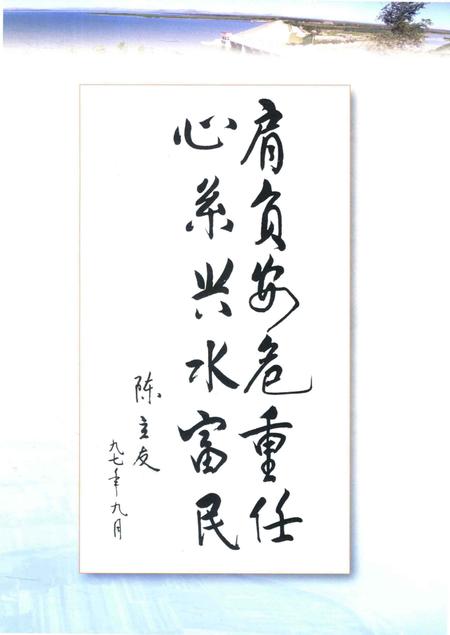 肩负安危重任
心系兴水富民
陈立友
九七年九月